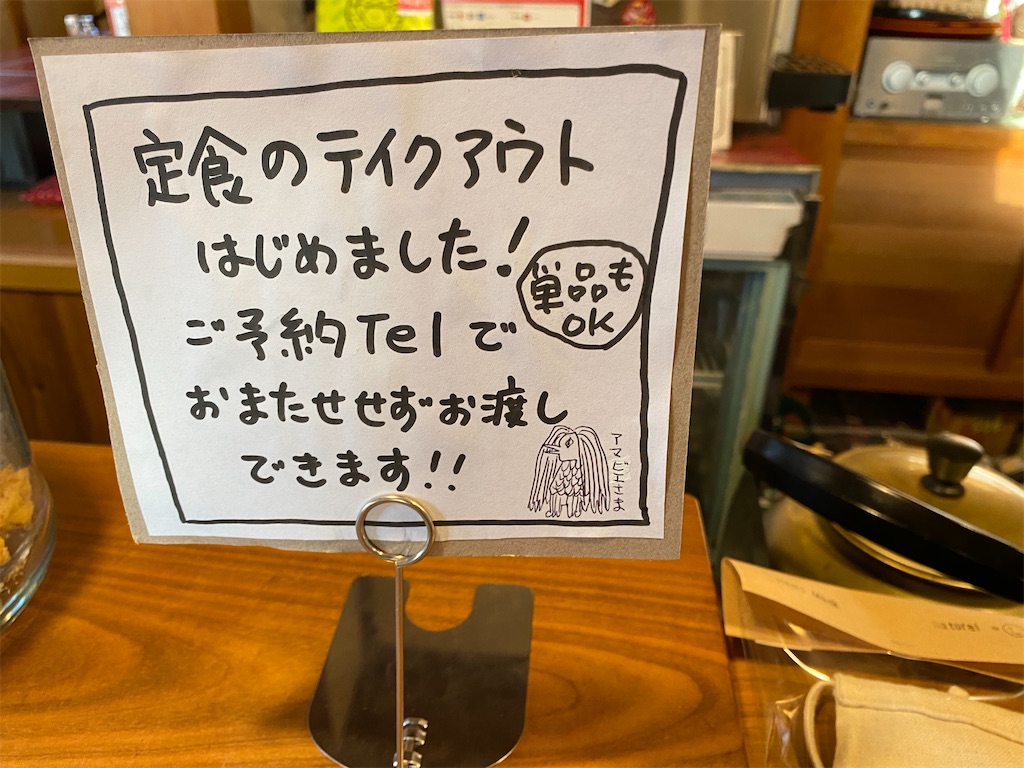 定食のテイクアウト
はじめました!
単品も
OK
ご予約Telで
おまたせせずお渡し
できます!!
アマビエさま
natural